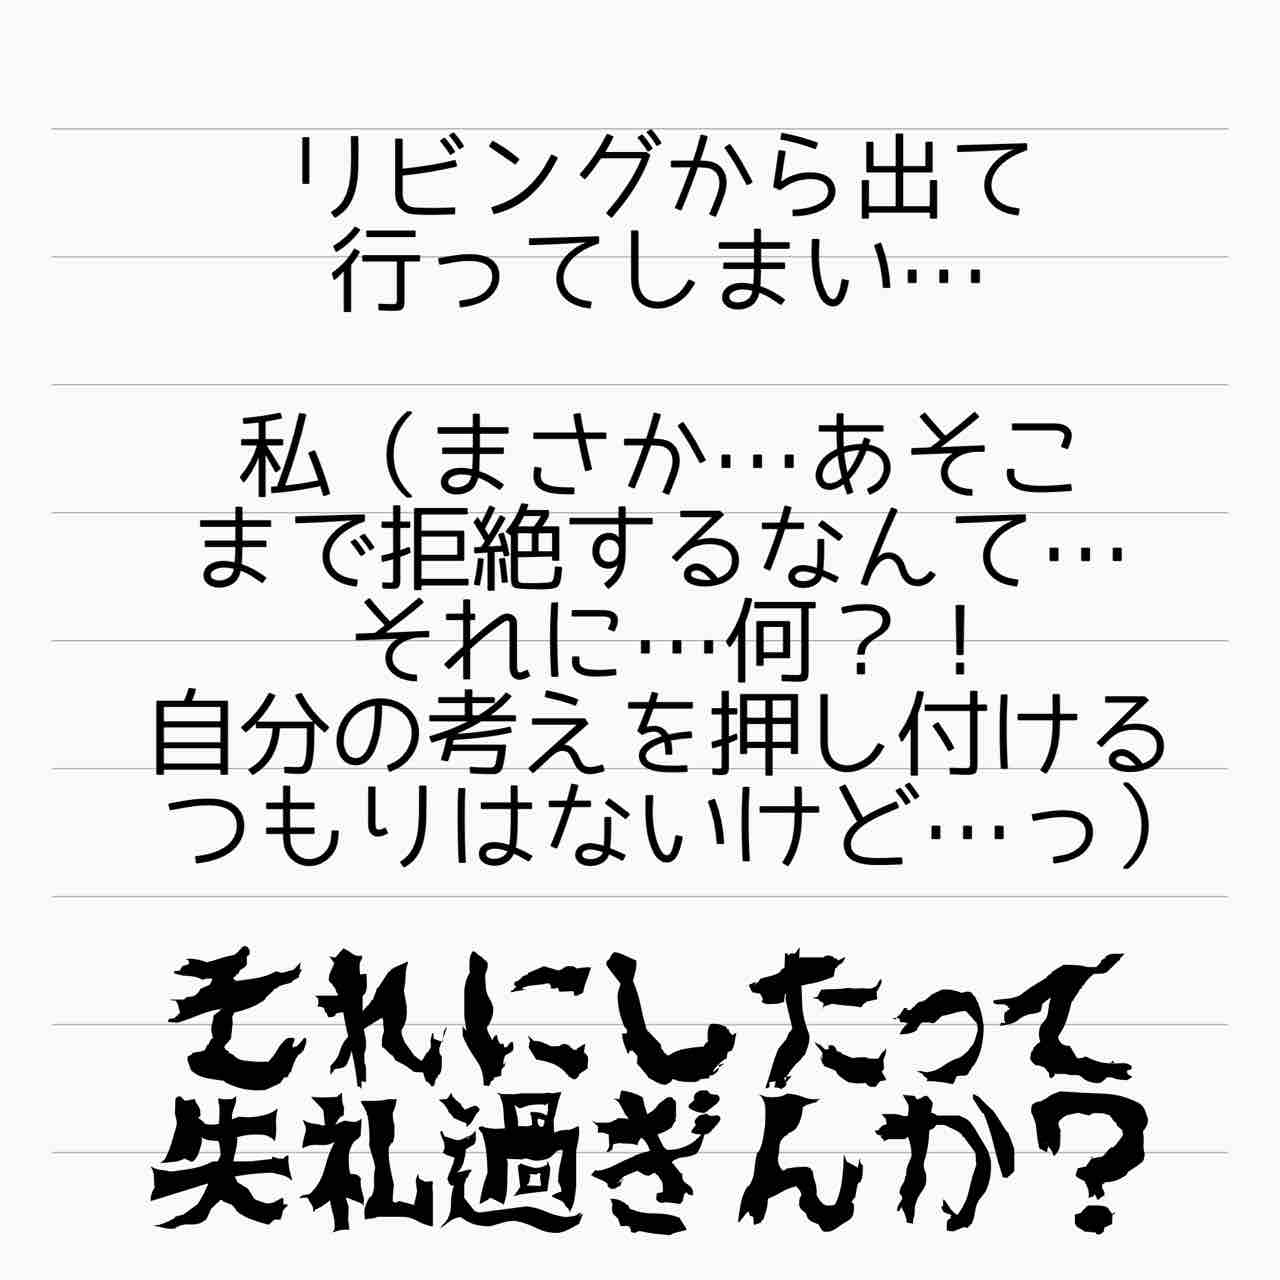 リビングから出て
行ってしまい…
私（まさか…あそこ
まで拒絶するなんて…
それに…何？！
自分の考えを押し付ける
つもりはないけど…っ）
それにしたって
失礼過ぎんか？